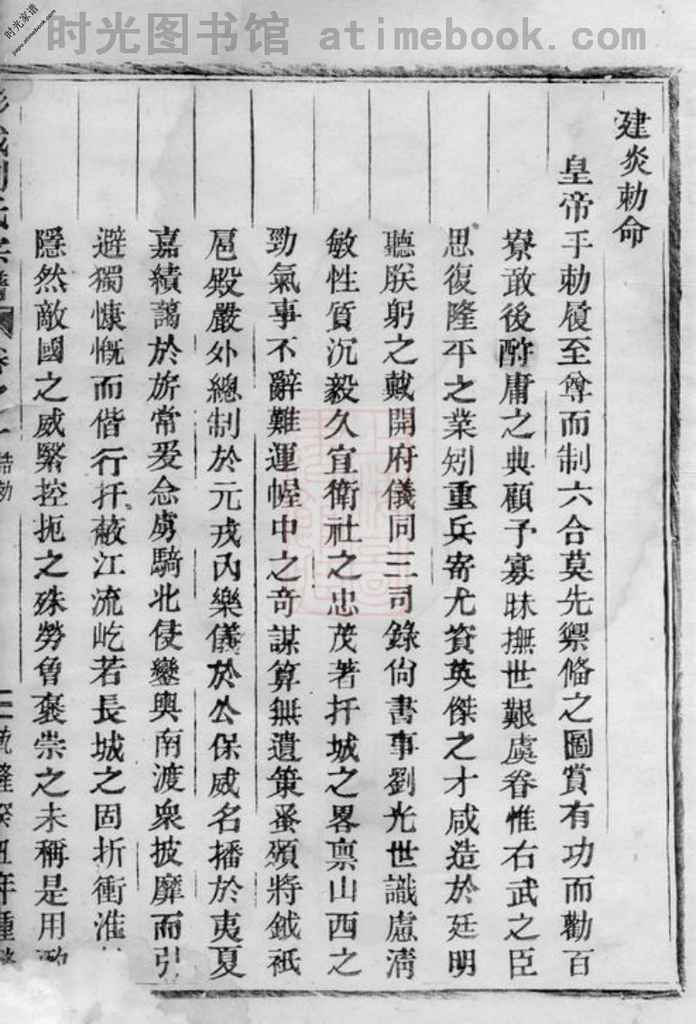 时光家谱
www.atimebook.com
时光图书馆 atimebook.com
建炎勅命
皇帝手勅履至尊而制六合莫先禦備之圖賞有功而勸百
寮敢後酧庸之典顧予寡昧撫世艱虞眷惟右武之臣
思復隆平之業矧重兵寄尤資英傑之才咸造於廷明
聽朕躬之戴開府儀同三司錄尙書事劉光世識慮淸
敏性質沉毅久宜衛社之忠茂著扞城之畧禀山西之
勁氣事不辭難運幄中之奇謀算無遺策蚤頒將鉞祇
扈殿嚴外總制於元戎內樂儀於公保威名播於夷夏
嘉績藹於旂常爰念虜騎北侵鑾輿南渡衆披靡而引
避獨慷慨而偕行扞蔽江流屹若長城之固折衝淮
隱然敵國之威緊控扼之殊勞曾褒崇之未稱是用
劉氏宗譜 卷之一 誥勅 乾隆癸丑年重